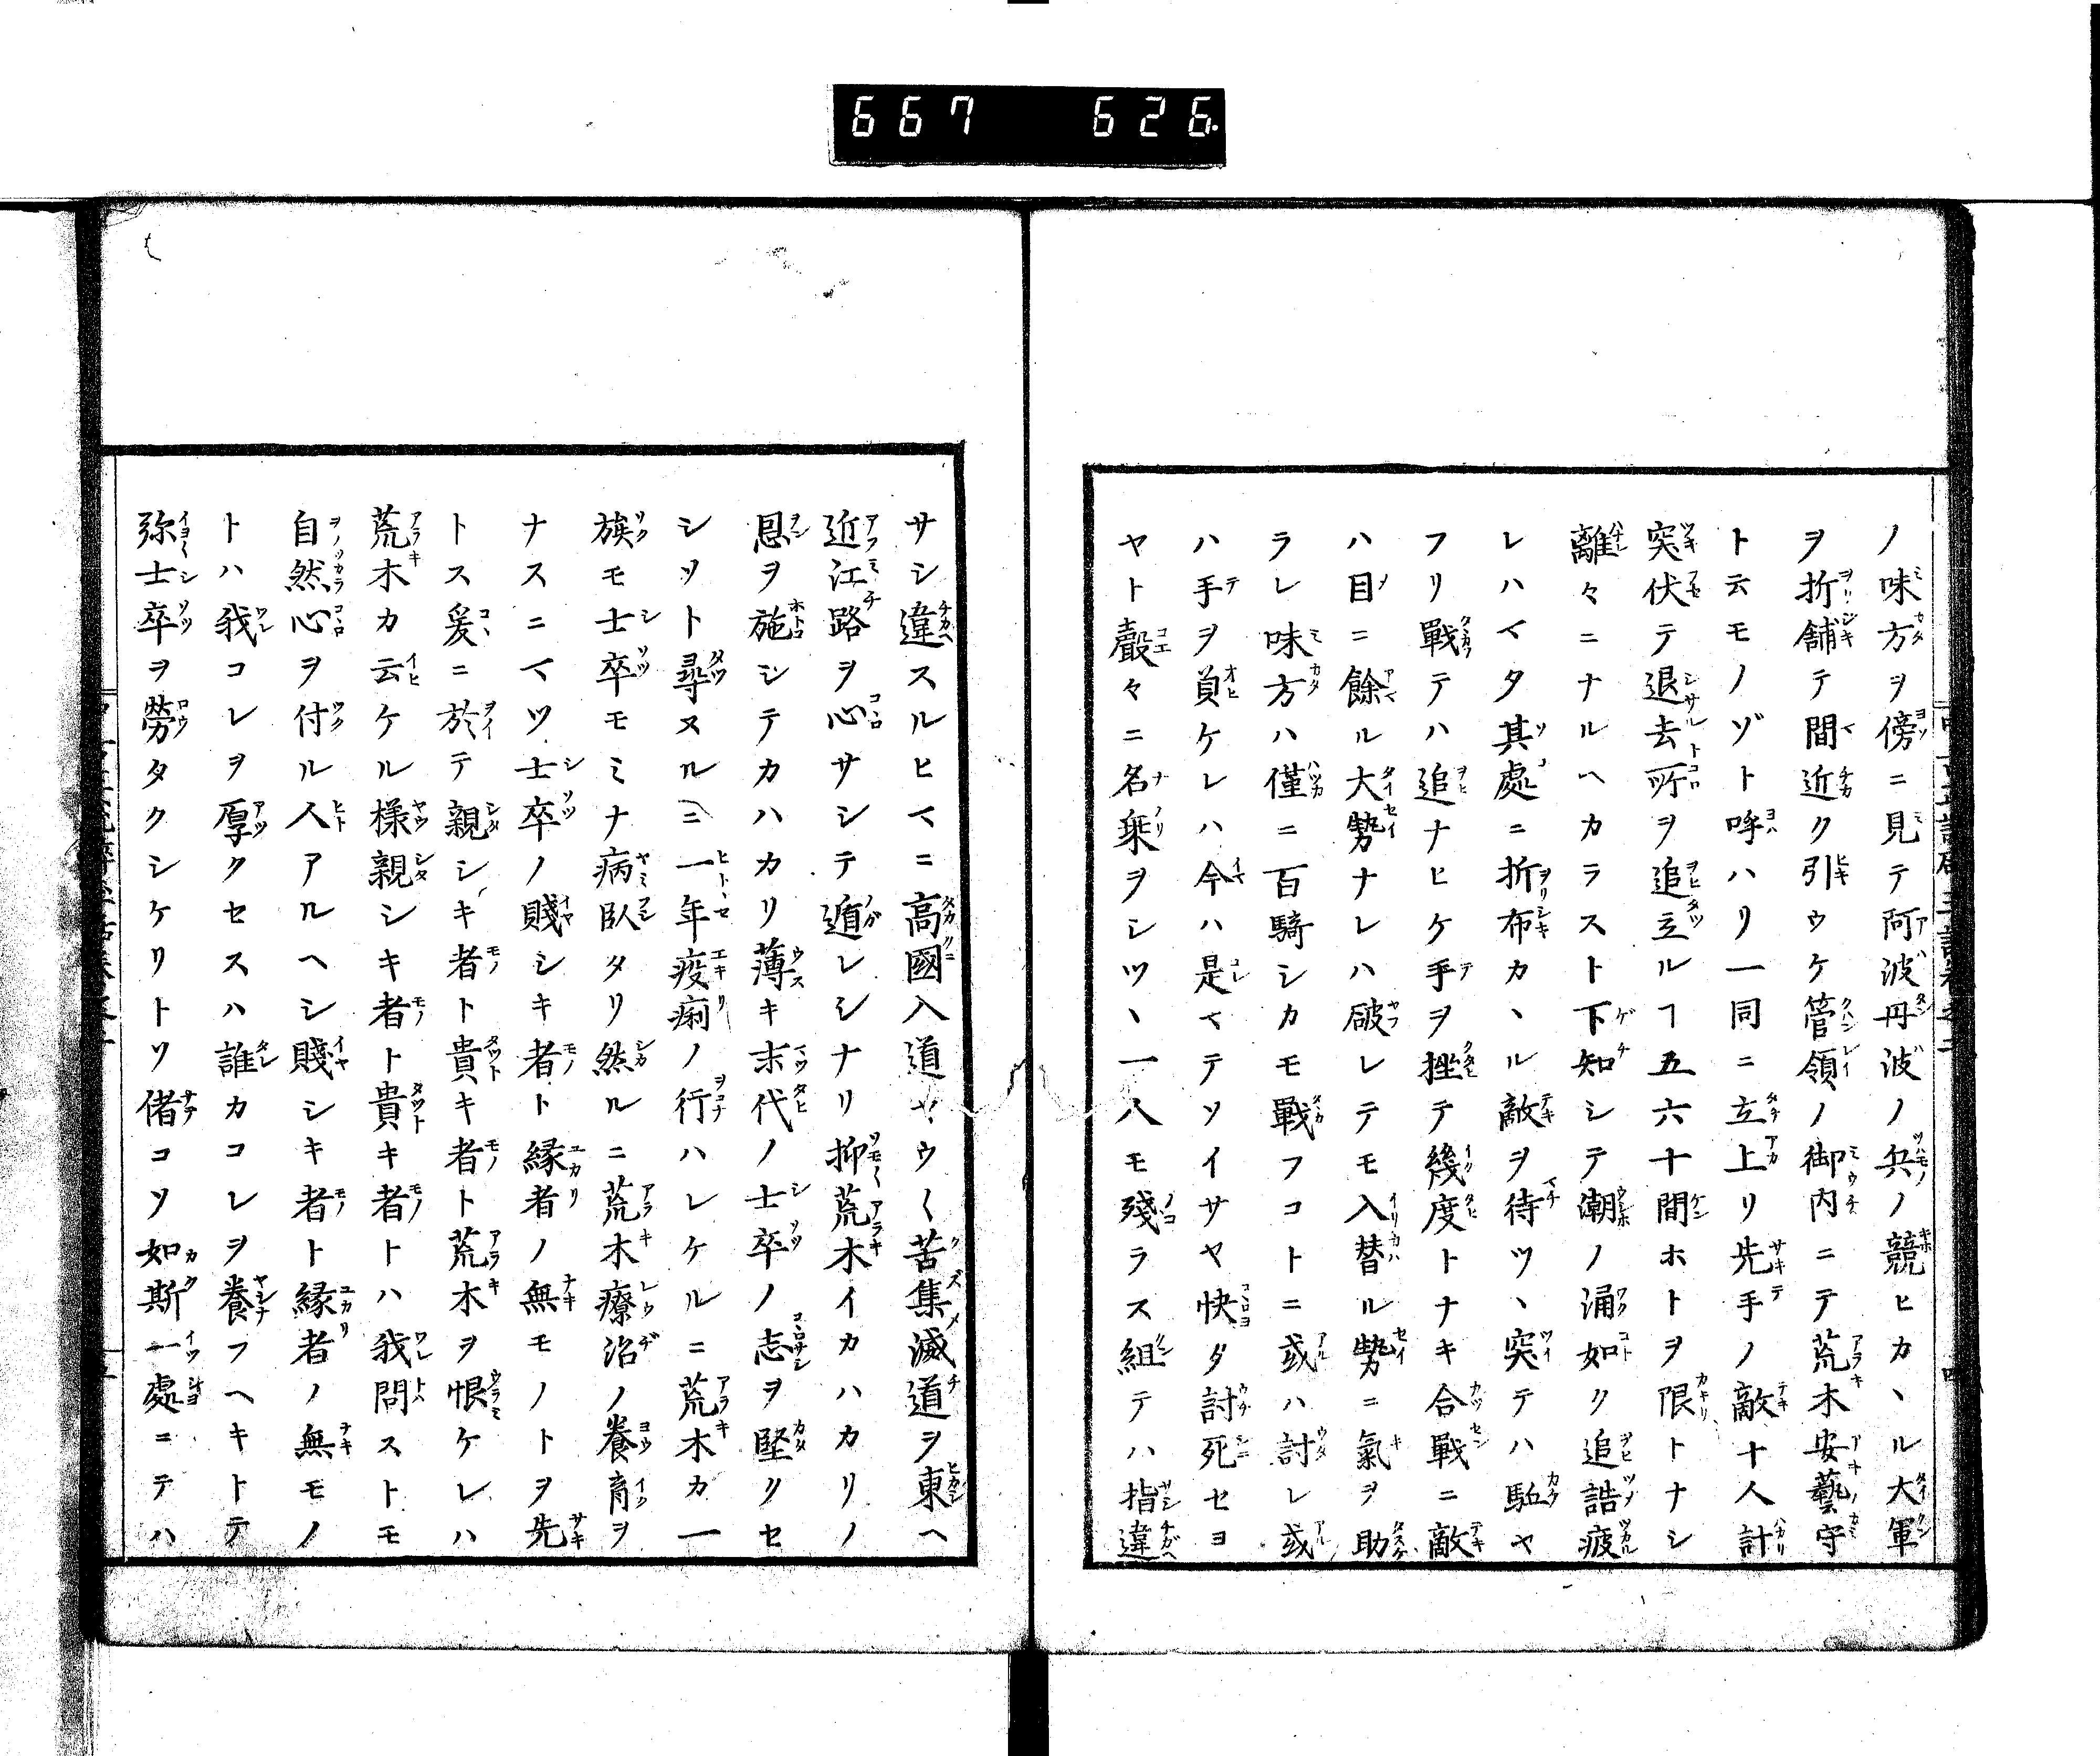 667 626
ノ味方ヲ傍ニ見テ阿波丹波ノ兵ノ競ヒカヽル大軍
ヲ折舗テ間近ク引ウケ管領ノ御内ニテ荒木安藝守
ト云モノゾト呼ハリ一同ニ立上リ先手ノ敵十人計
突伏テ退去所ヲ追立ルヿ五六十間ホトヲ限トナシ
離々ニナルヘカラスト下知シテ潮ノ涌如ク追詰疲
レハマタ其處ニ折布カヽル敵ヲ待ツヽ突テハ駈ヤ
フリ戰テハ追ナヒケ手ヲ挫テ幾度トナキ合戰ニ敵
ハ目ニ餘ル大勢ナレハ破レテモ入替ル勢ニ氣ヲ助
ラレ味方ハ僅ニ百騎シカモ戰フコトニ或ハ討レ或
ハ手ヲ負ケレハ今ハ是マテソイサヤ快タ討死セヨ
ヤト聲々ニ名乗ヲシツヽ一人モ殘ラス組テハ指違
サシ違スルヒマニ高國入道ヤウ〱苦集滅道ヲ東ヘ
近江路ヲ心サシテ遁レシナリ抑荒木イカハカリノ
恩ヲ施シテカハカリ薄キ末代ノ士卒ノ志ヲ堅クセ
シソト尋ヌルニ一年疫痢ノ行ハレケルニ荒木カ一
族モ士卒モミナ病臥タリ然ルニ荒木療治ノ養育ヲ
ナスニマツ士卒ノ賤シキ者ト縁者ノ無モノトヲ先
トス爰ニ於テ親シキ者ト貴キ者ト荒木ヲ恨ケレハ
荒木カ云ケル様親シキ者ト貴キ者トハ我問ストモ
自然心ヲ付ル人アルヘシ賤シキ者ト縁者ノ無モノ
トハ我コレヲ厚クセスハ誰カコレヲ養フヘキトテ
弥士卒ヲ勞タクシケリトソ偖コソ如斯一處ニテハ